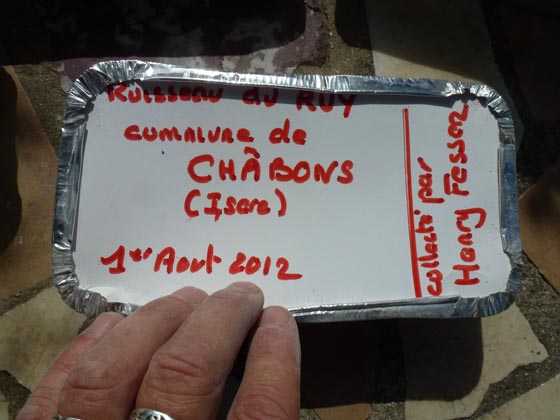 Ruisseau du RUY
commune de
CHÂBONS
(Isère)
1er Aout 2012
collecté par
Henry Fessaz